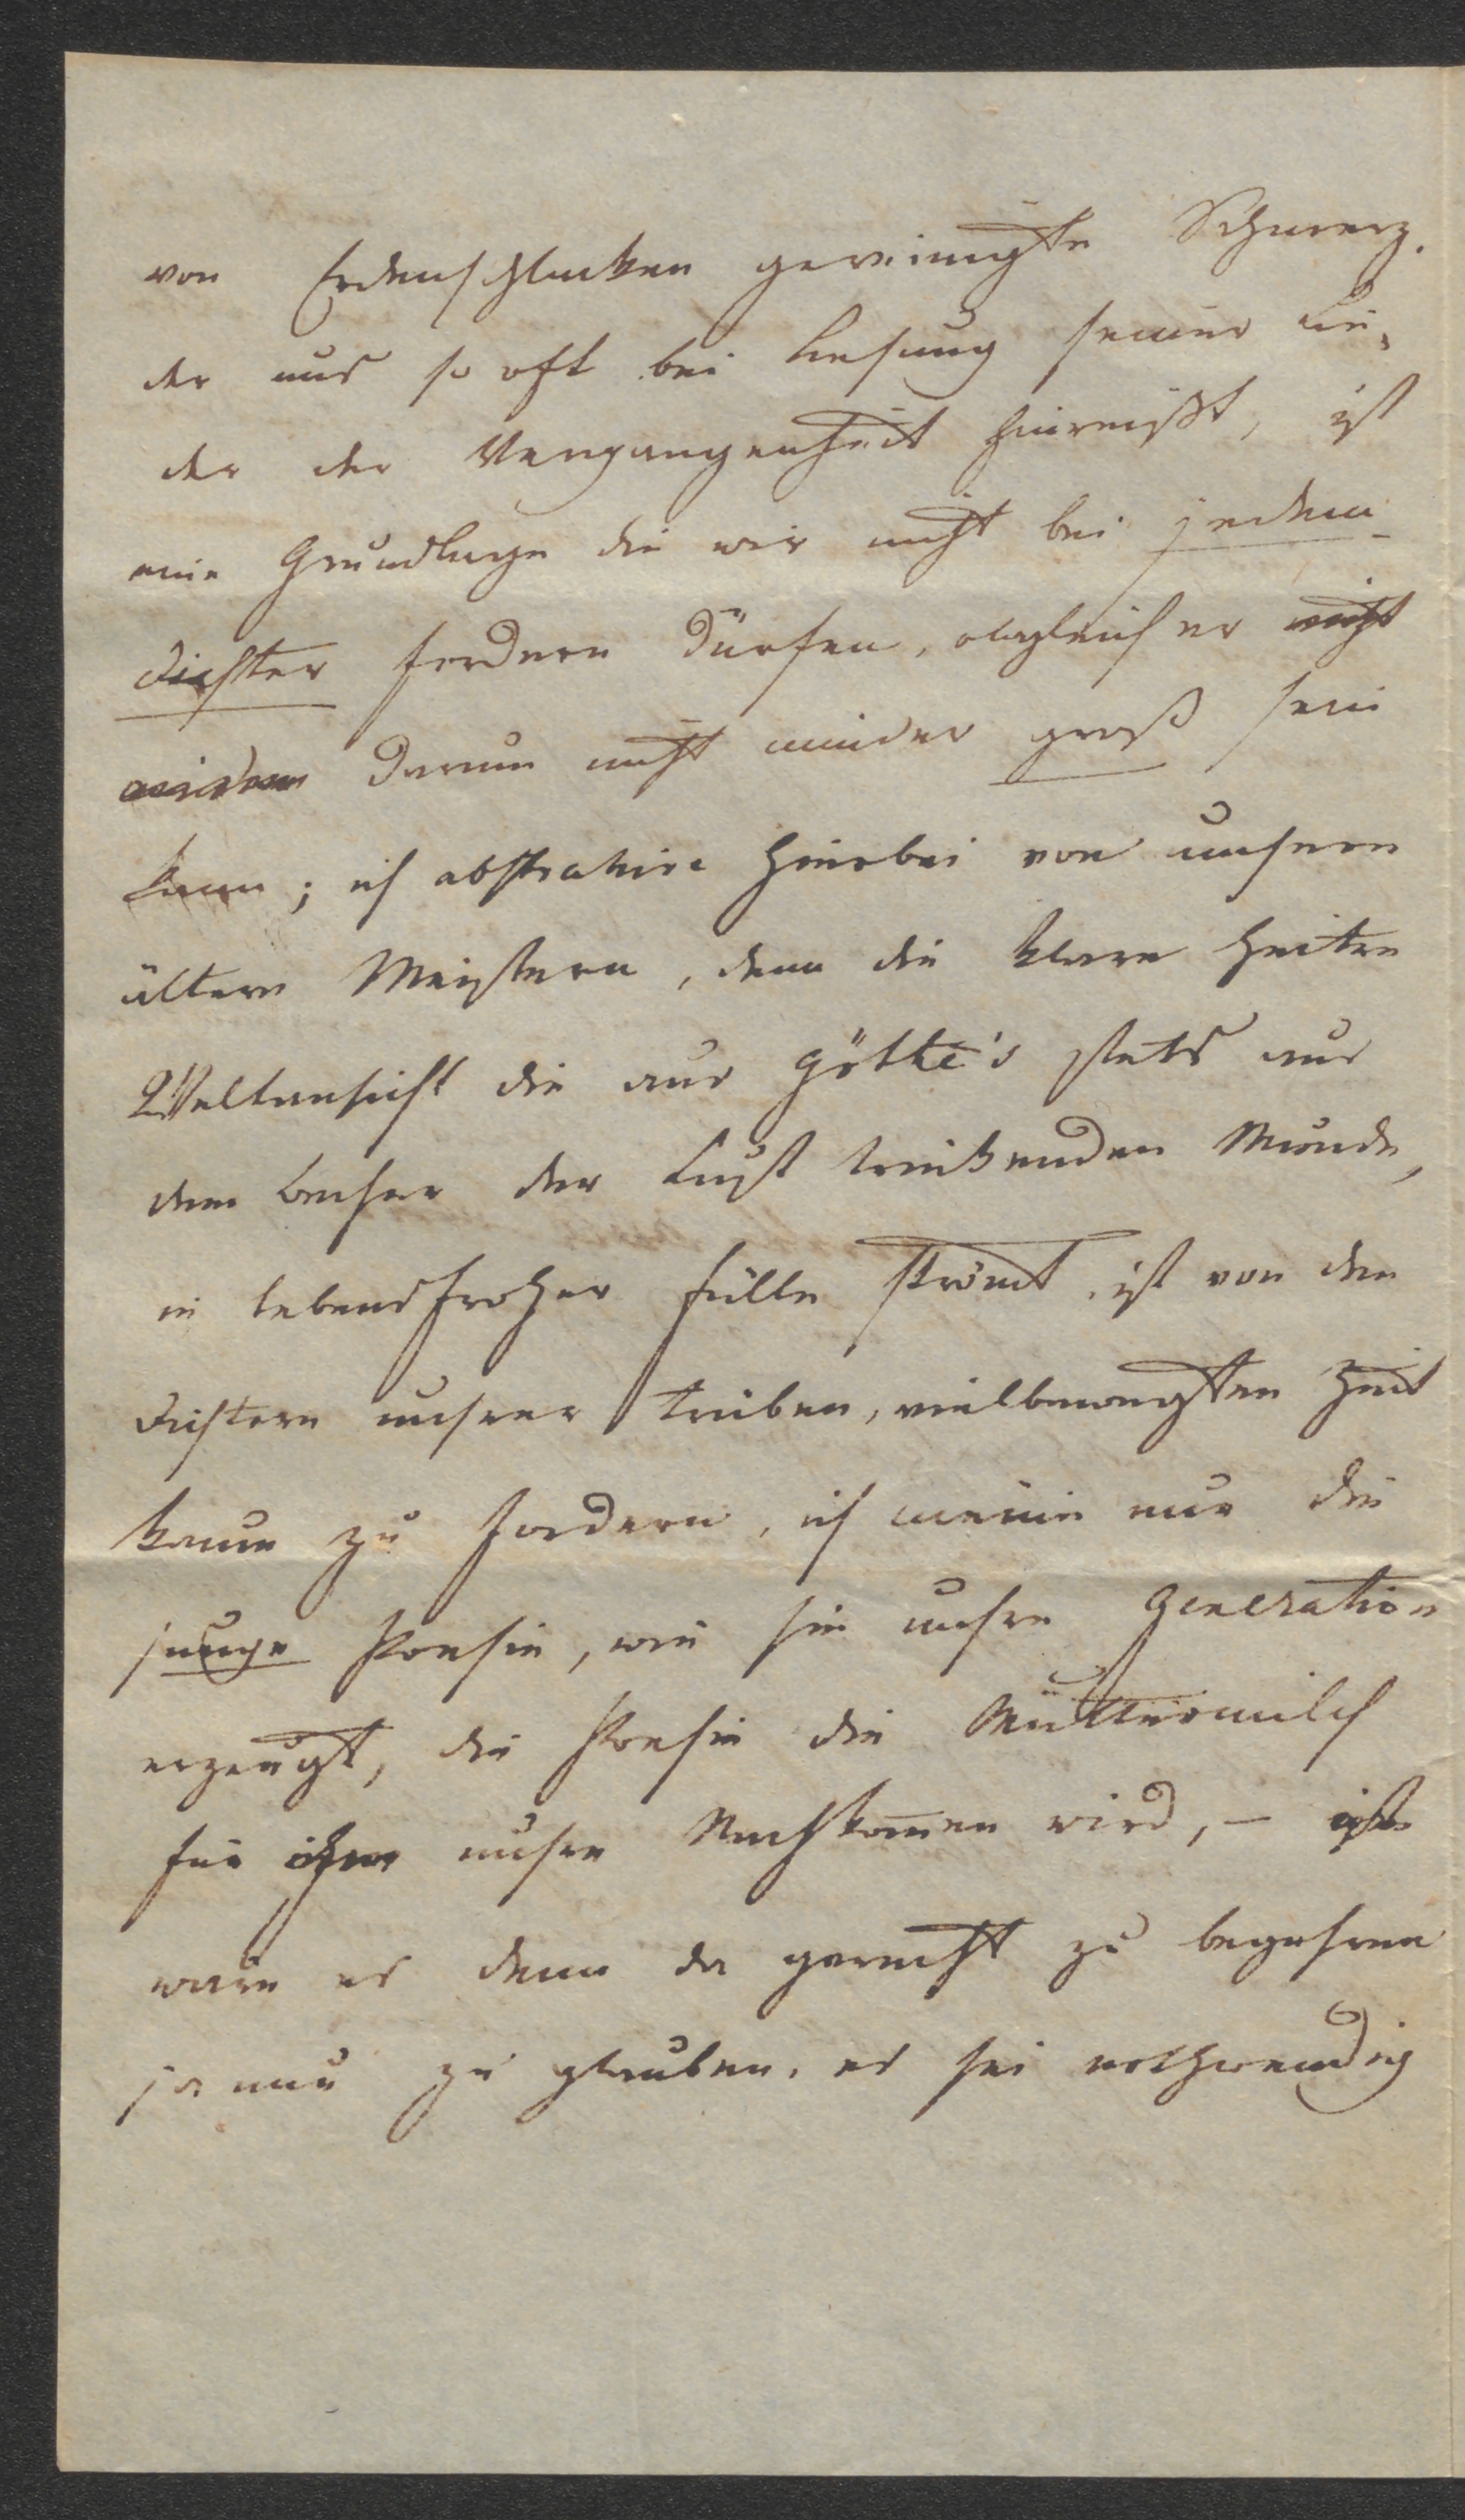 von Erdenschlacken gereinigte Schmerz.
der uns so oft bei Lesung seiner Lie-
der der Vergangenheit hinreißt, ist
eine Grundlage die wir nicht bei jedem
Dichter fordern dürfen, obgleich er nicht
minder darum nicht minder groß sein
kann; ich abstrahire hierbei von unsern
ältern Meistern, denn die klare heitre
Weltansicht die aus Göthe's stets aus
dem Becher der Lust trinkenden Munde,
in lebensfroher Fülle strömt, ist von den
Dichtern unsrer trüben, vielbewegten Zeit
kaum zu fordern, ich meine nur die
junge Poesie, wie sie unsre Generation
erzeugt, die Poesie die Muttermilch
für ihre unsre Nachkom̅en wird, – ist
wäre es denn da gerecht zu begehren
ja nur zu glauben, es sei nothwendig